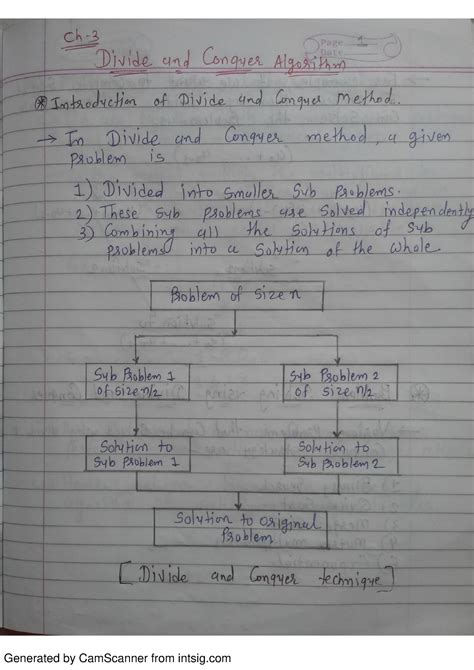 Ch-3
Page 1
Date
Divide and Conquer Algorithm
* Introduction of Divide and Conquer Method.
→ In Divide and Conquer method, a given
problem is
1) Divided into smaller Sub Problems.
2) These Sub Problems are Solved independently
3) Combining all the Solutions of sub
problems into a Solution of the whole.
Problem of size n
Sub Problem 1
of size n/2
Sub Problem 2
of size n/2
Solution to
Sub Problem 1
Solution to
Sub Problem 2
Solution to original
Problem
[Divide and Conquer technique]
Generated by CamScanner from intsig.com